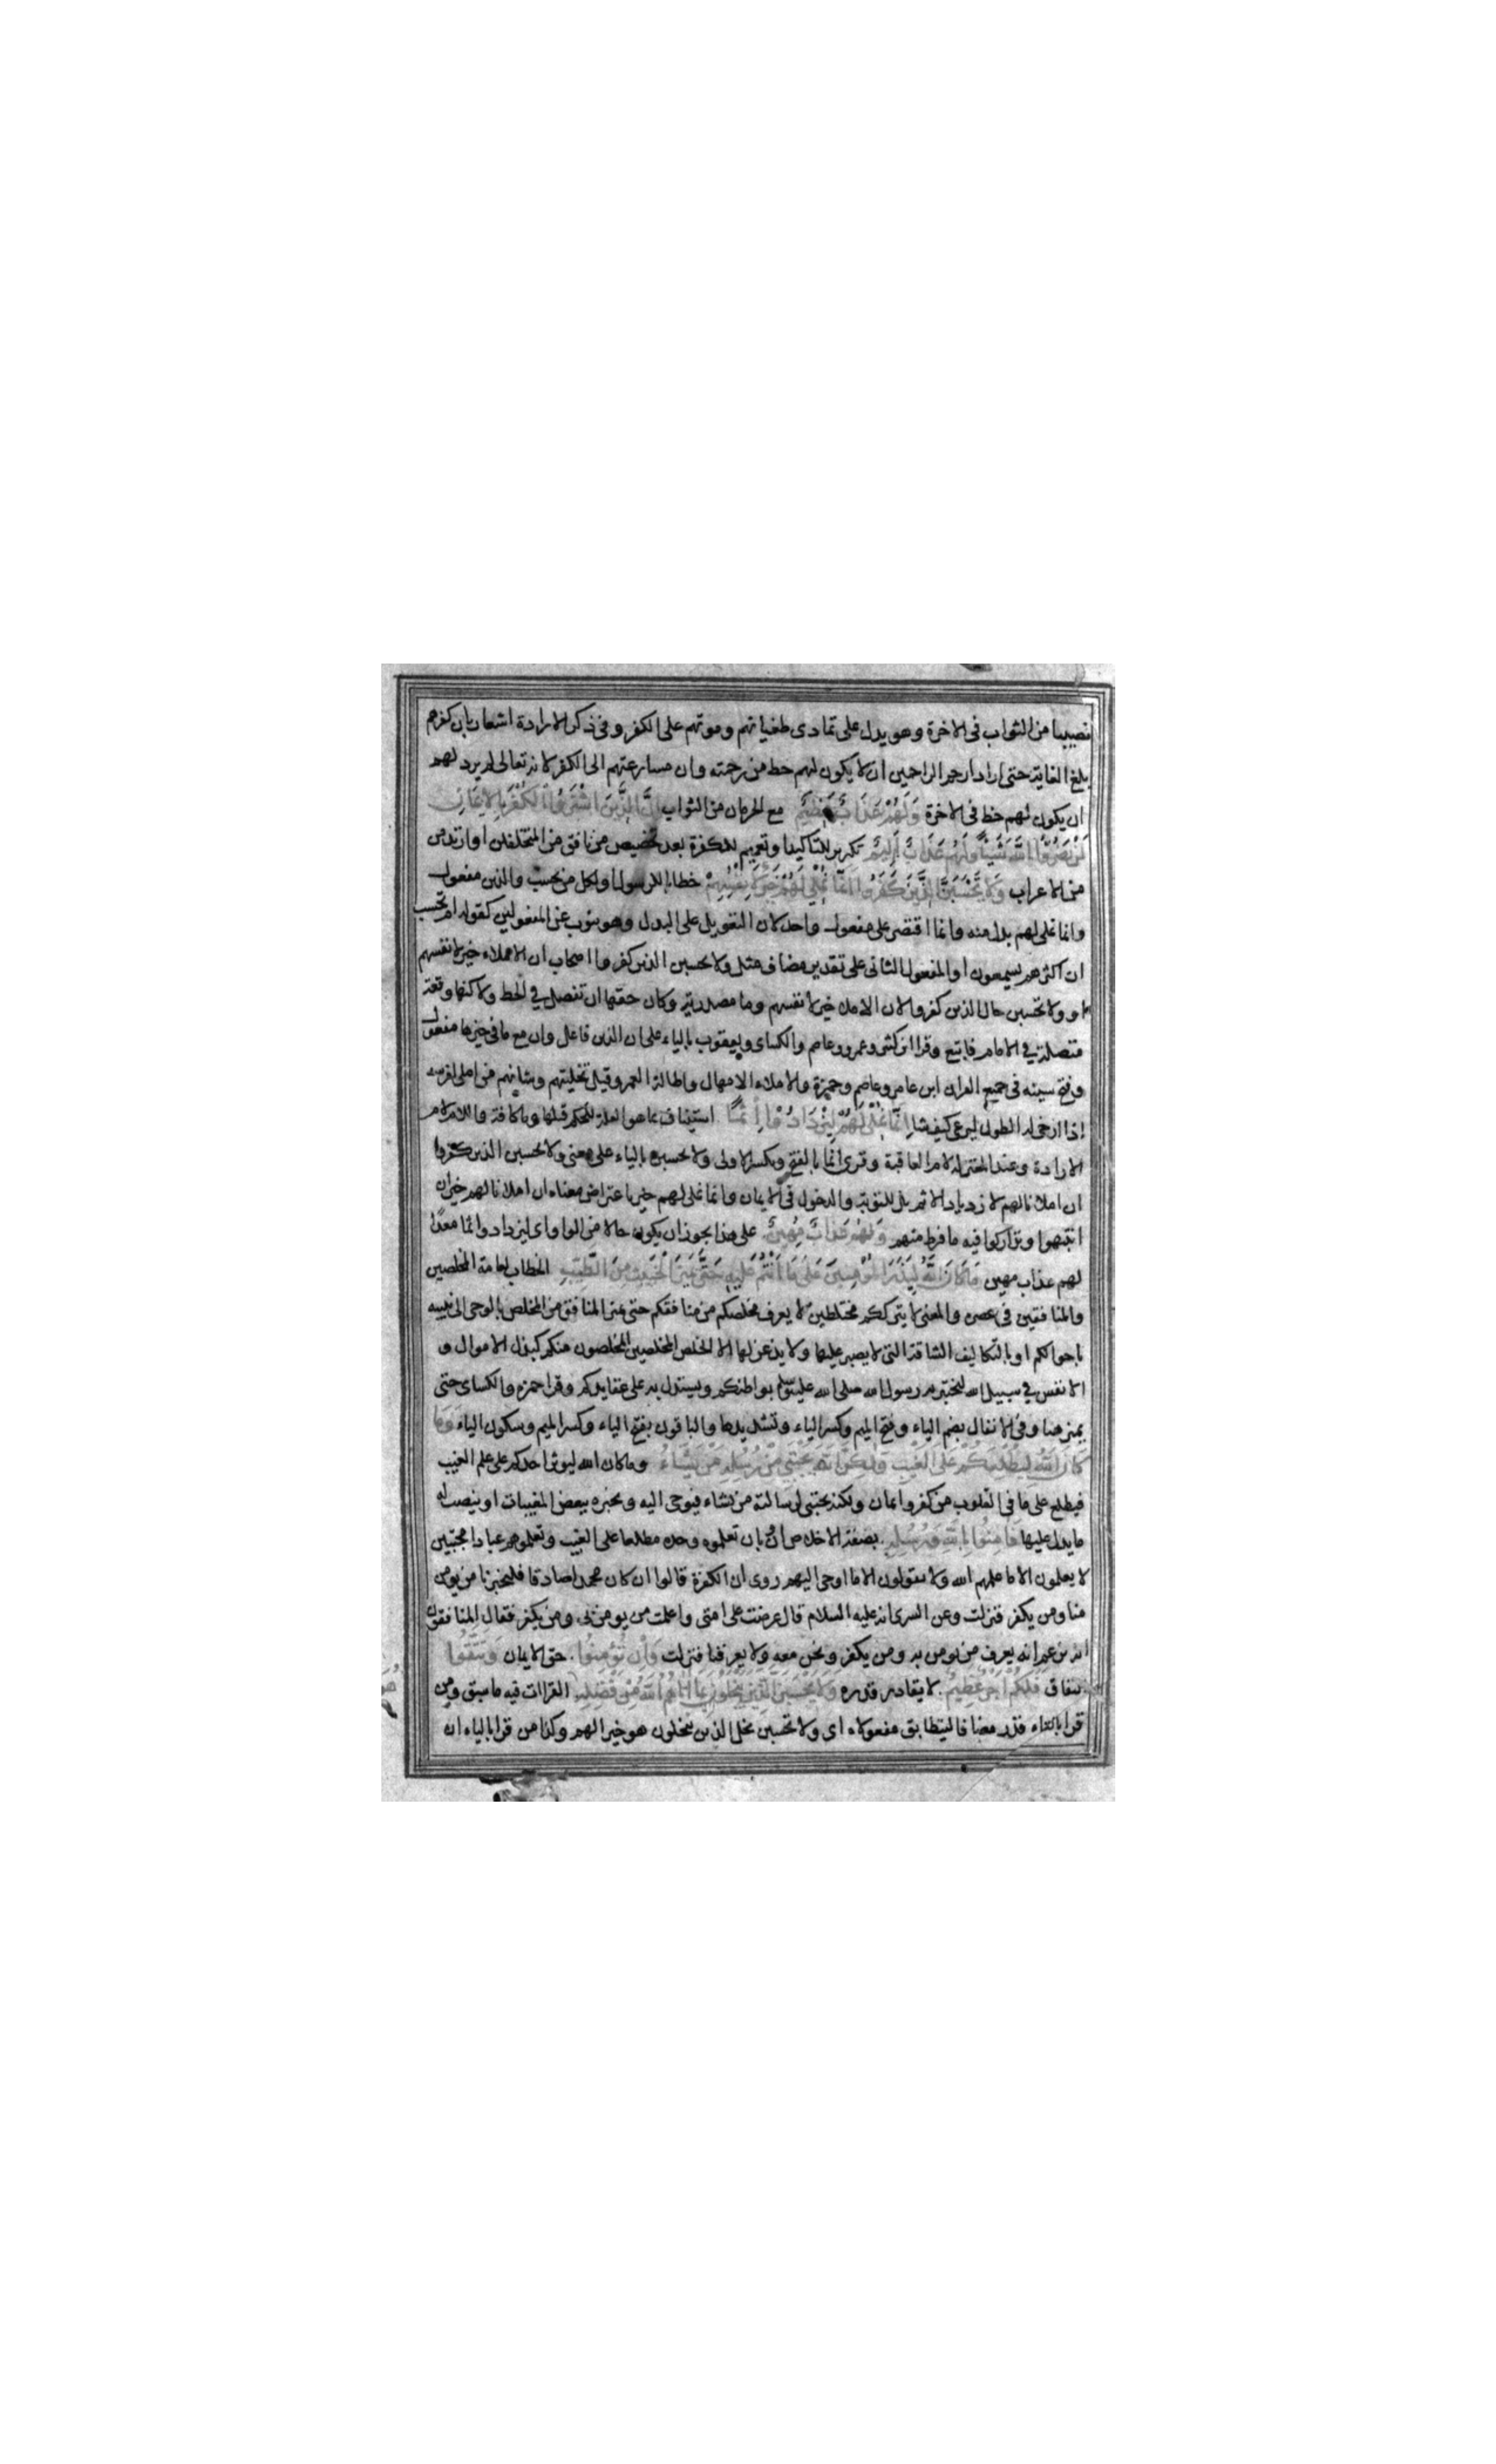 نصيبا من الثواب فى الاخرة وهو يدل على تمادى طغيانهم وموتهم على الكفر وفى ذكر الارادة اشعار بان كفرهم
بلغ الغاية حتى اراد ارحم الراحمين ان لا يكون لهم حظ من رحمته وان مسارعتهم الى الكفر لانه تعالى لم يرد لهم
ان يكون لهم حظ فى الاخرة وَلَهُمْ عَذَابٌ عَظِيمٌ مع الحرمان من الثواب اِنَّ الَّذِينَ اشْتَرَوُا الْكُفْرَ بِالْاِيمَانِ
لَنْ يَضُرُّوا اللَّهَ شَيْئًا وَلَهُمْ عَذَابٌ اَلِيمٌ تكرير للتاكيد وتعميم للكفرة بعد تخصيص من نافق من المتخلفين او ارتد من
من الاعراب وَلَا تَحْسَبَنَّ الَّذِينَ كَفَرُوا اَنَّمَا نُمْلِي لَهُمْ خَيْرٌ لِاَنْفُسِهِمْ خطاب للرسول او لكل من يحسب والذين مفعول
وانما نملى لهم بدل منه وانما اقتصر على مفعول واحد لان التعويل على البدل وهو ينوب عن المفعولين كقوله ام تحسب
ان اكثرهم يسمعون او المفعول الثانى على تقدير مضاف مثل ولا تحسبن الذين كفروا اصحاب ان الاملاء خير لانفسهم
او ولا تحسبن حال الذين كفروا لان الاملاء خير لانفسهم وما مصدرية وكان حقها ان تفصل في الخط ولاكنها وقعة
متصلة في الامام فاتبع وقرا ابن كثير وعمرو وعاصم والكساى ويعقوب بالياء على ان الذين فاعل وان مع ما فى حيزها مفعول
وفتح سينه فى جميع القران ابن عامر وعاصم وحمزة والاملاء الامهال واطالة العمر وقيل تخليتهم وشانهم من املى لفرسه
اذا ارخى له الطول ليرعى كيف شا اِنَّمَا نُمْلِي لَهُمْ لِيَزْدَادُوا اِثْمًا استيناف بما هو العلة للحكم قبلها وما كافة واللام لام
الارادة وعند المعتزلة لام العاقبة وقرى انما بالفتح وبكسر الاولى ولا يحسبن بالياء على معنى ولا يحسبن الذين كفروا
ان املانا لهم لازدياد الاثم بل للتوبة والدخول فى الايمان وانما نملى لهم خير اعتراض معناه ان املانا لهم خير ان
انتبهوا وتداركوا فيه ما فرط منهم وَلَهُمْ عَذَابٌ مُهِينٌ على هذا يجوز ان يكون حالا من الواو اى ليزدادوا اثما معدا
لهم عذاب مهين مَا كَانَ اللَّهُ لِيَذَرَ الْمُؤْمِنِينَ عَلَى مَا اَنْتُمْ عَلَيْهِ حَتَّى يَمِيزَ الْخَبِيثَ مِنَ الطَّيِّبِ الخطاب لعامة المخلصين
والمنافقين فى عصره والمعنى لا يترككم مختلطين لا يعرف مخلصكم من منافقكم حتى يميز المنافق من المخلص بالوحى الى نبيه
باحوالكم او بالتكاليف الشاقة التى لا يصبر عليها ولا يذعن لها الا الخلص المخلصين المخلصون منكم كبذل الاموال و
الانفس في سبيل الله ليختبر به رسول الله صلى الله عليه وسلم بواطنكم ويستدل به على عقايدكم وقرا حمزه والكساى حتى
يميز هنا وفى الانفال بضم الياء وفتح الميم وكسر الياء وتشديدها والباقون بفتح الياء وكسر الميم وسكون الياء وَمَا
كَانَ اللَّهُ لِيُطْلِعَكُمْ عَلَى الْغَيْبِ وَلَكِنَّ اللَّهَ يَجْتَبِي مِنْ رُسُلِهِ مَنْ يَشَاءُ وما كان الله ليوتى احدكم على علم الغيب
فيطلع على ما فى القلوب من كفر وايمان ولكنه يجتبى لرسالته من يشاء فيوحى اليه ويخبره ببعض المغيبات او ينصب له
ما يدل عليها فَامِنُوا بِاللَّهِ وَرُسُلِهِ بصفة الاخلاص او بان تعلموه وحده مطلعا على الغيب وتعلموهم عبادا مجتبين
لا يعلمون الا ما علمهم الله ولا يقولون الا ما اوحى اليهم روى ان الكفرة قالوا ان كان محمد صادقا فليخبرنا من يومن
منا ومن يكفر فنزلت وعن السدى انه عليه السلام قال عرضت على امتى واعلمت من يومن بى ومن يكفر فقال المنافقون
انه يزعم انه يعرف من يومن به ومن يكفر ونحن معه ولا يعرفنا فنزلت وَاِنْ تُؤْمِنُوا حق الايمان وَتَتَّقُوا
النفاق فَلَكُمْ اَجْرٌ عَظِيمٌ لا يقادر قدره وَلَا يَحْسَبَنَّ الَّذِينَ يَبْخَلُونَ بِمَا اتَاهُمُ اللَّهُ مِنْ فَضْلِهِ القراات فيه ما سبق ومن
قرا بالتاء قدر مضافا ليتطابق مفعولاه اى ولا تحسبن بخل الذين يبخلون هو خيرا لهم وكذا من قرا بالياء ان